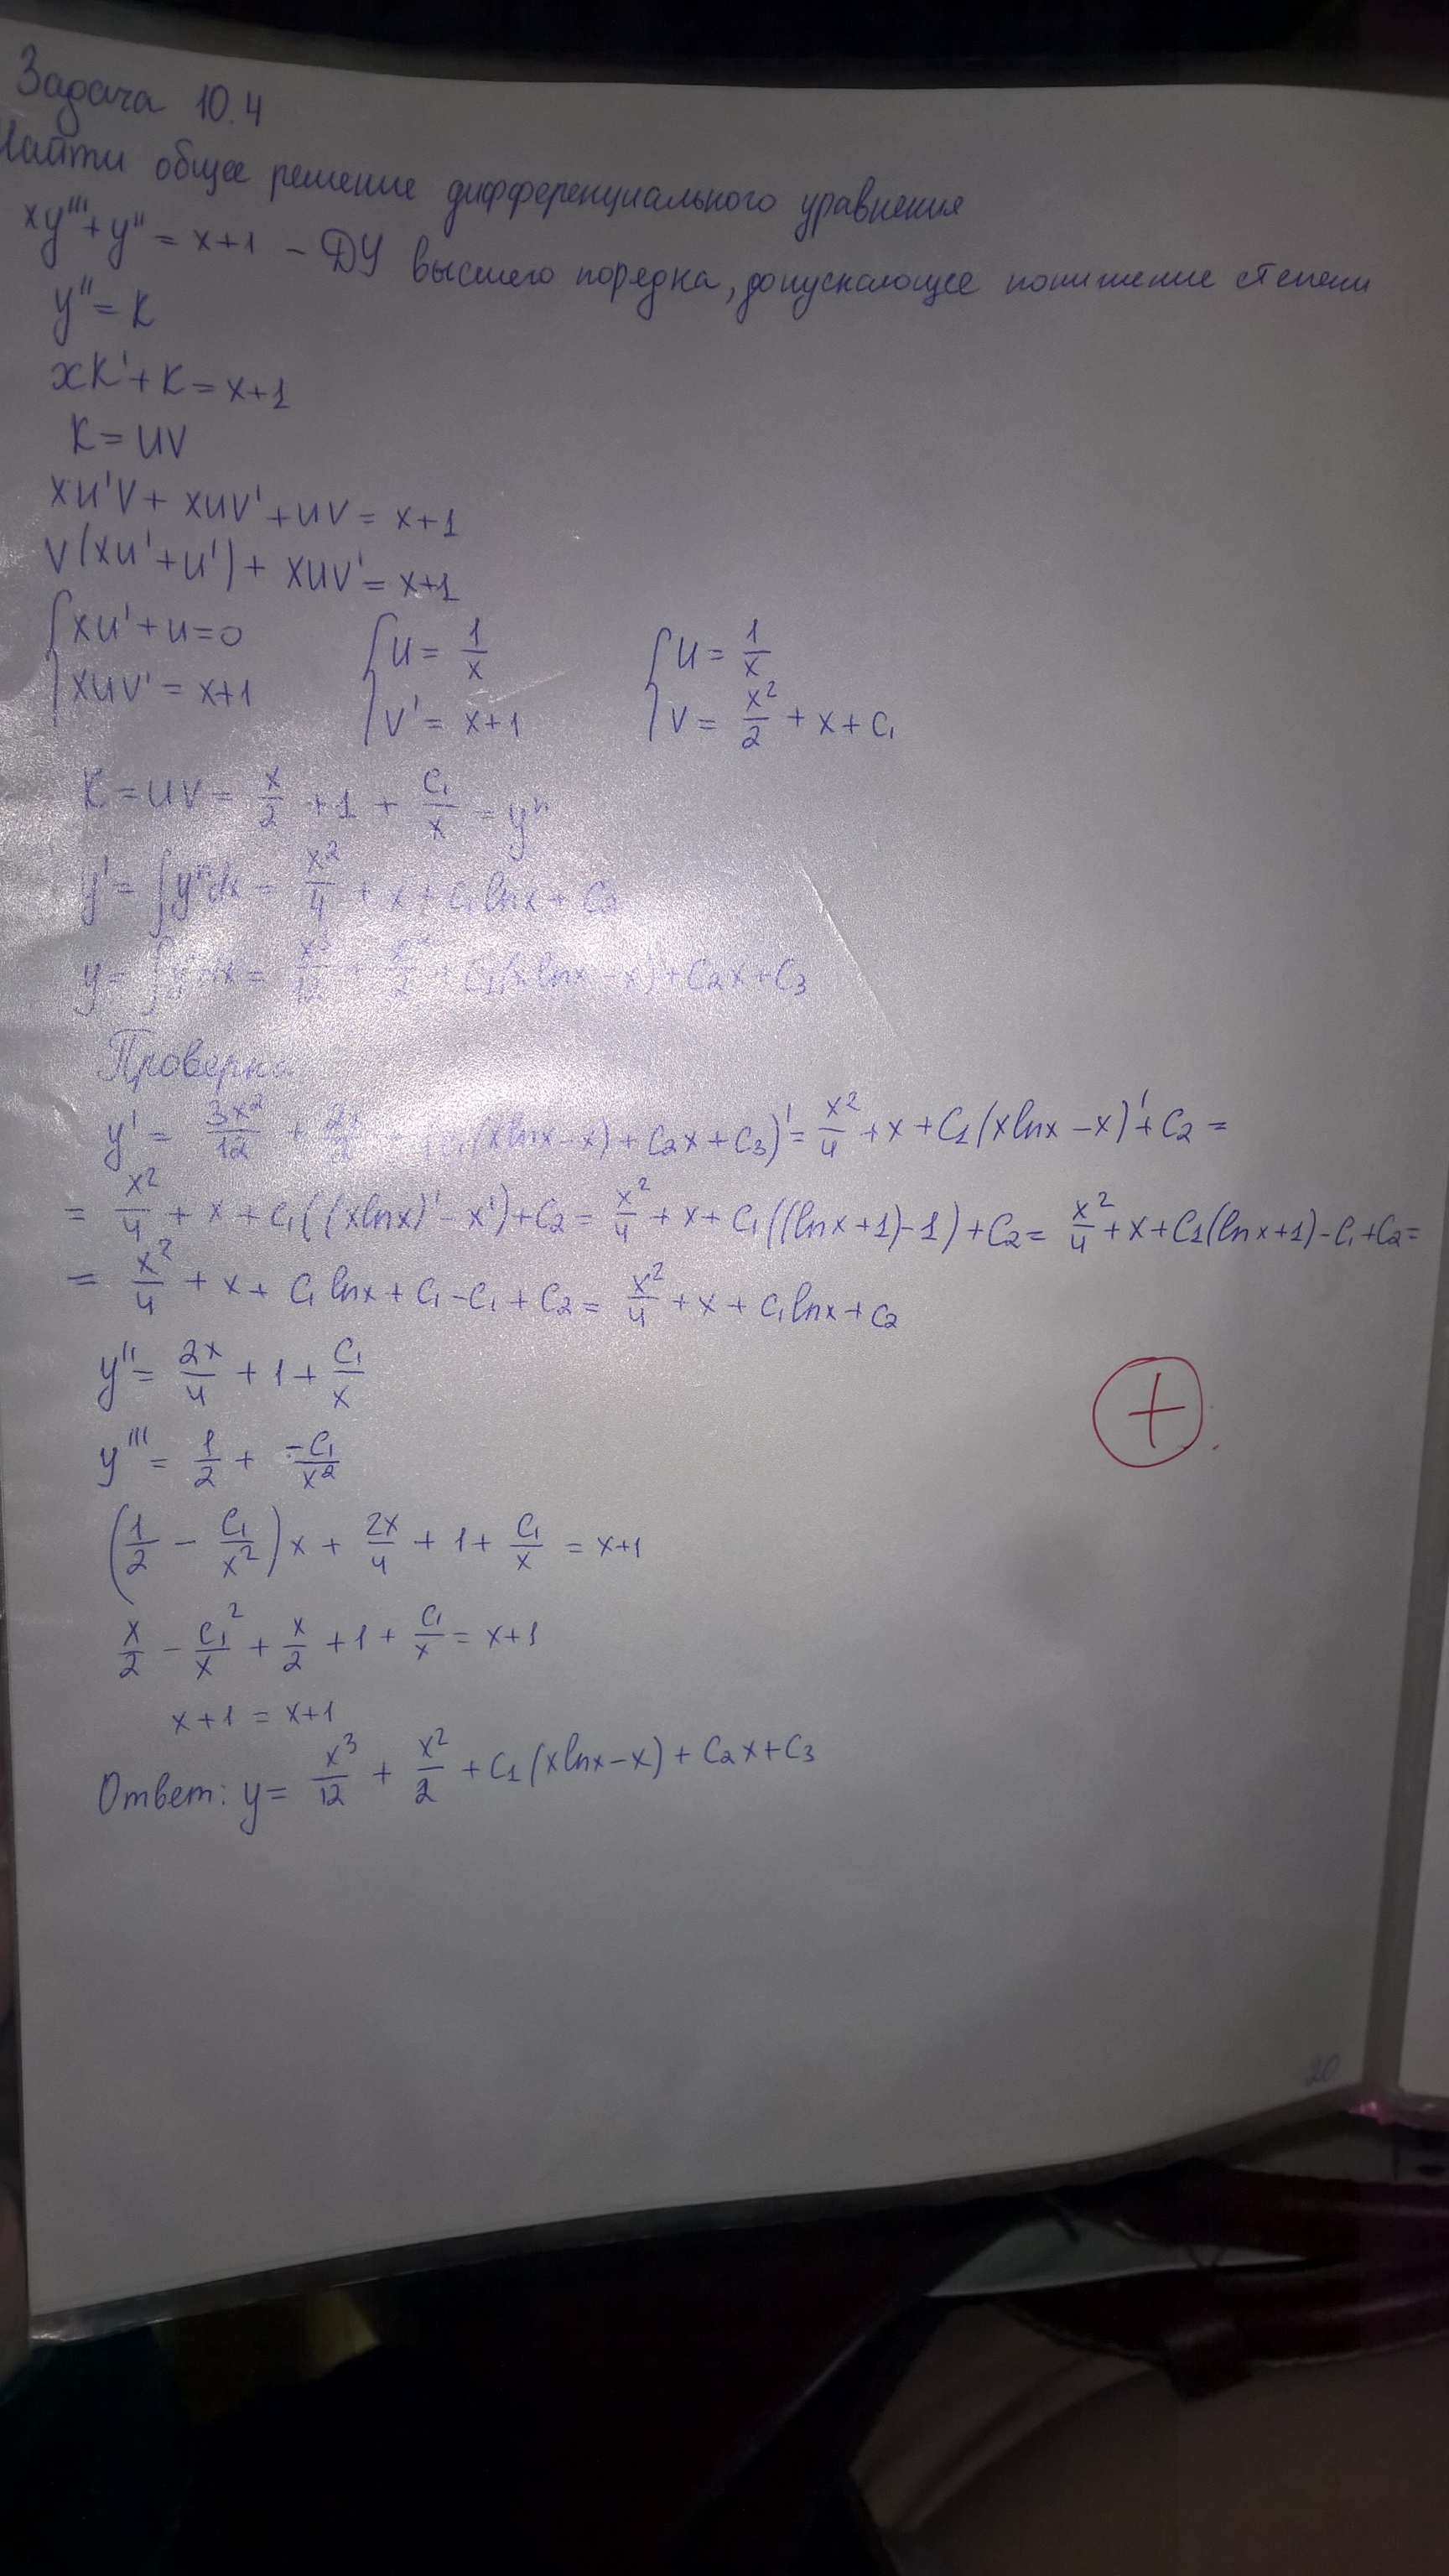 Задача 10.4
Найти общее решение дифференциального уравнения
xy''' + y'' = x+1 – ДУ высшего порядка, допускающее понижение степени
y'' = K
xK' + K = x+1
K = UV
xU'V + xUV' + UV = x+1
V(xU' + U') + xUV' = x+1
{xU' + U = 0 {U = 1/x {U = 1/x
{xUV' = x+1 {V' = x+1 {V = x²/2 + x + C₁
K = UV = x/2 + 1 + C₁/x = y''
y' = ∫y''dx = x²/4 + x + C₁lnx + C₂
y = ∫y'dx = x³/12 + x²/2 + C₁(xlnx – x) + C₂x + C₃
Проверка
y' = 3x²/12 + (xlnx – x) + C₂x + C₃)' = x²/4 + x + C₁(xlnx – x)' + C₂ =
= x²/4 + x + C₁((xlnx)' – x') + C₂ = x²/4 + x + C₁((lnx+1) – 1) + C₂ = x²/4 + x + C₁(lnx+1) – C₁ + C₂ =
= x²/4 + x + C₁lnx + C₁ – C₁ + C₂ = x²/4 + x + C₁lnx + C₂
y'' = 2x/4 + 1 + C₁/x
y''' = 1/2 + –C₁/x²
(1/2 – C₁/x²)x + 2x/4 + 1 + C₁/x = x+1
x/2 – C₁²/x + x/2 + 1 + C₁/x = x+1
x+1 = x+1
+
Ответ: y = x³/12 + x²/2 + C₁(xlnx – x) + C₂x + C₃
20